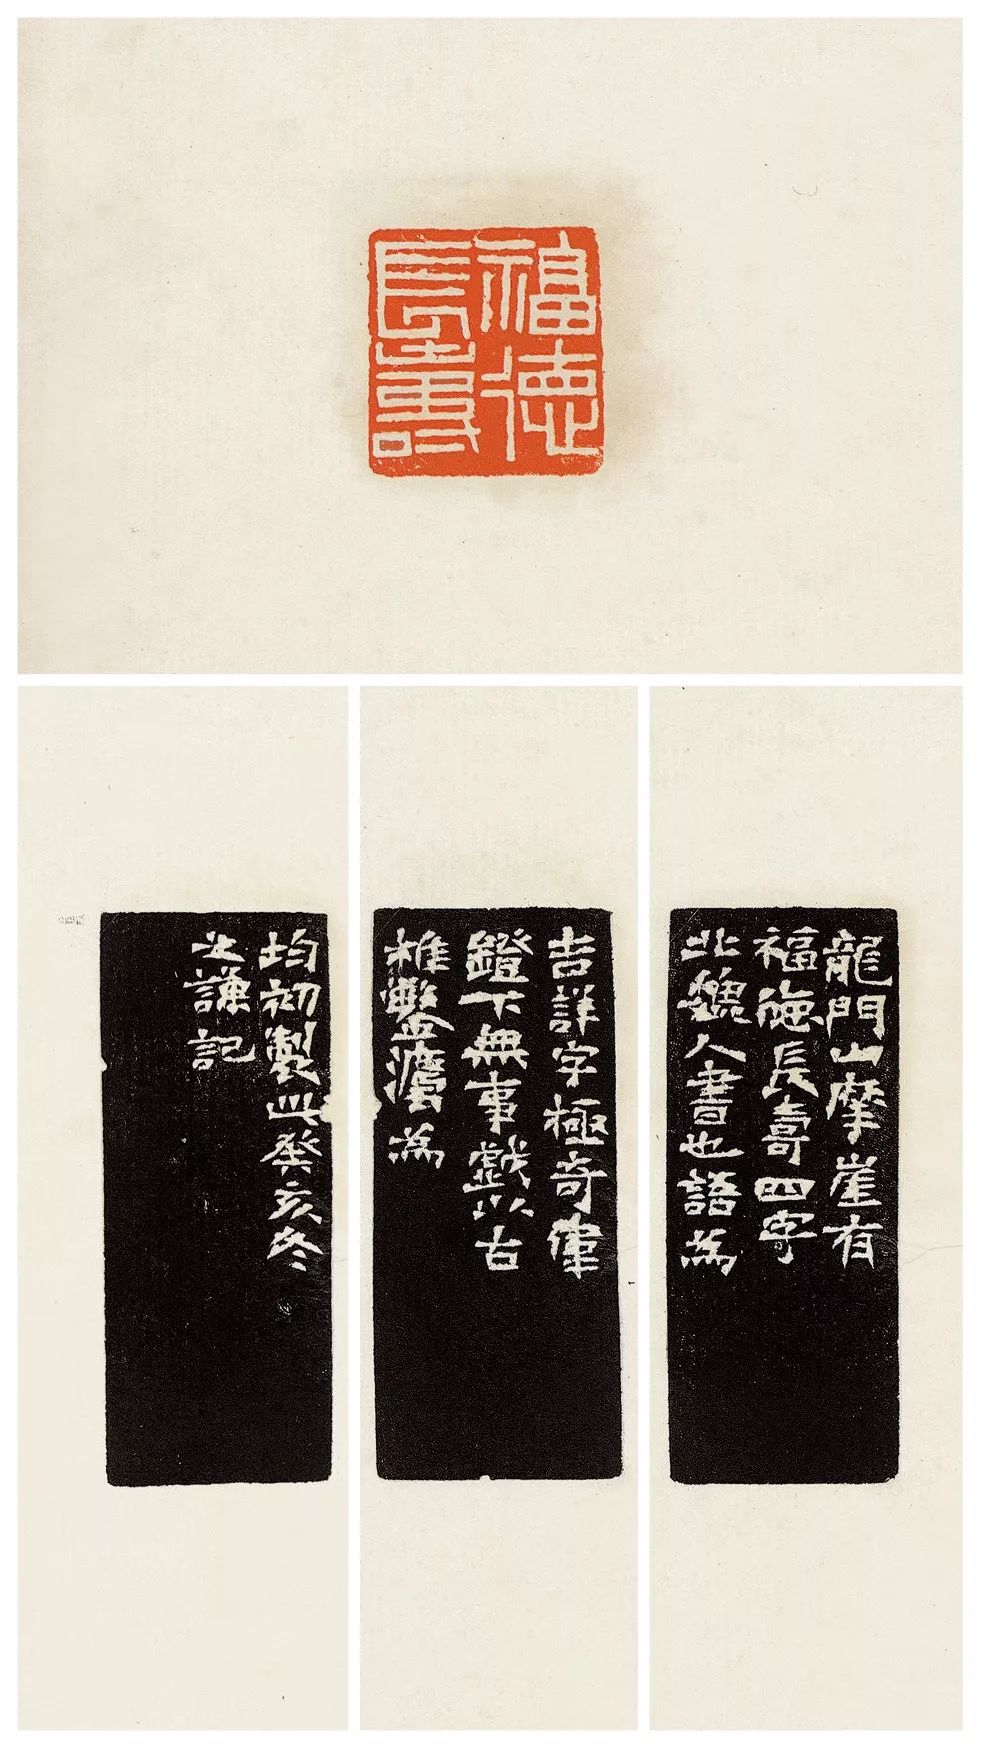 福德
長壽
龍門山摩崖有
福德長壽四字
北魏人書也語為
吉詳字極奇偉
鐙下無事戲以古
稚鑿灋為
均初製此癸亥冬
之謙記